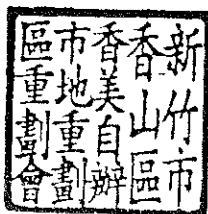 新竹市
香山區
香美自辦
市地重劃
區重劃會